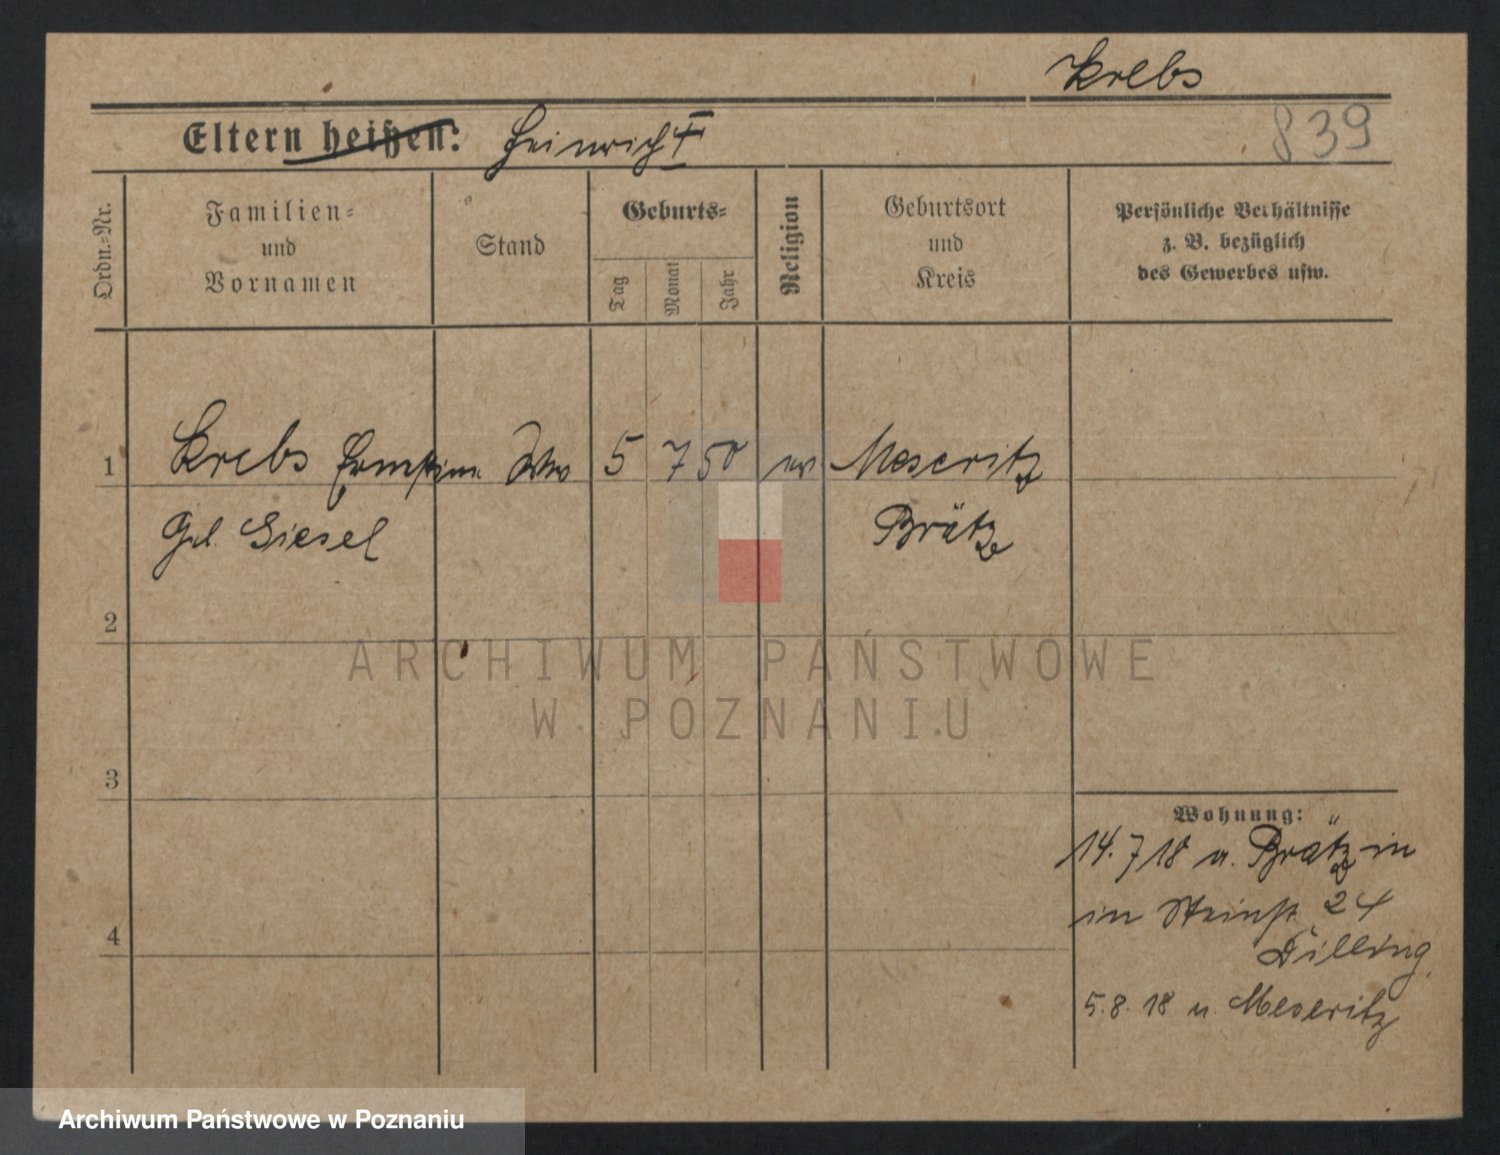 Krebs
Eltern heißen: Heinrich †
839
Ordn.-Nr.
Familien- und Vornamen
Stand
Geburts-
Tag
Monat
Jahr
Religion
Geburtsort und Kreis
Persönliche Verhältnisse z. B. bezüglich des Gewerbes usw.
1 Krebs Ernestine Ww 5 7 50 ev Meseritz
Geb. Giesel Brätz
2
ARCHIWUM PAŃSTWOWE
W POZNANIU
3
Wohnung:
14.7 18 v. Brätz in
in Steinstr. 24
Dilling
4
5.8.18 n. Meseritz
Archiwum Państwowe w Poznaniu